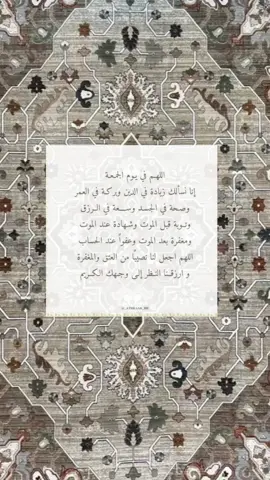 اللهم في يوم الجمعة
إنا نسألك زيادة في الدين وبركة في العمر
وصحة في الجسد وسعة في الرزق
وتوبة قبل الموت وشهادة عند الموت
ومغفرة بعد الموت وعفواً عند الحساب
اللهم أجعل لنا نصيباً من العتق والمغفرة
و ارزقنا النظر إلى وجهك الكريم